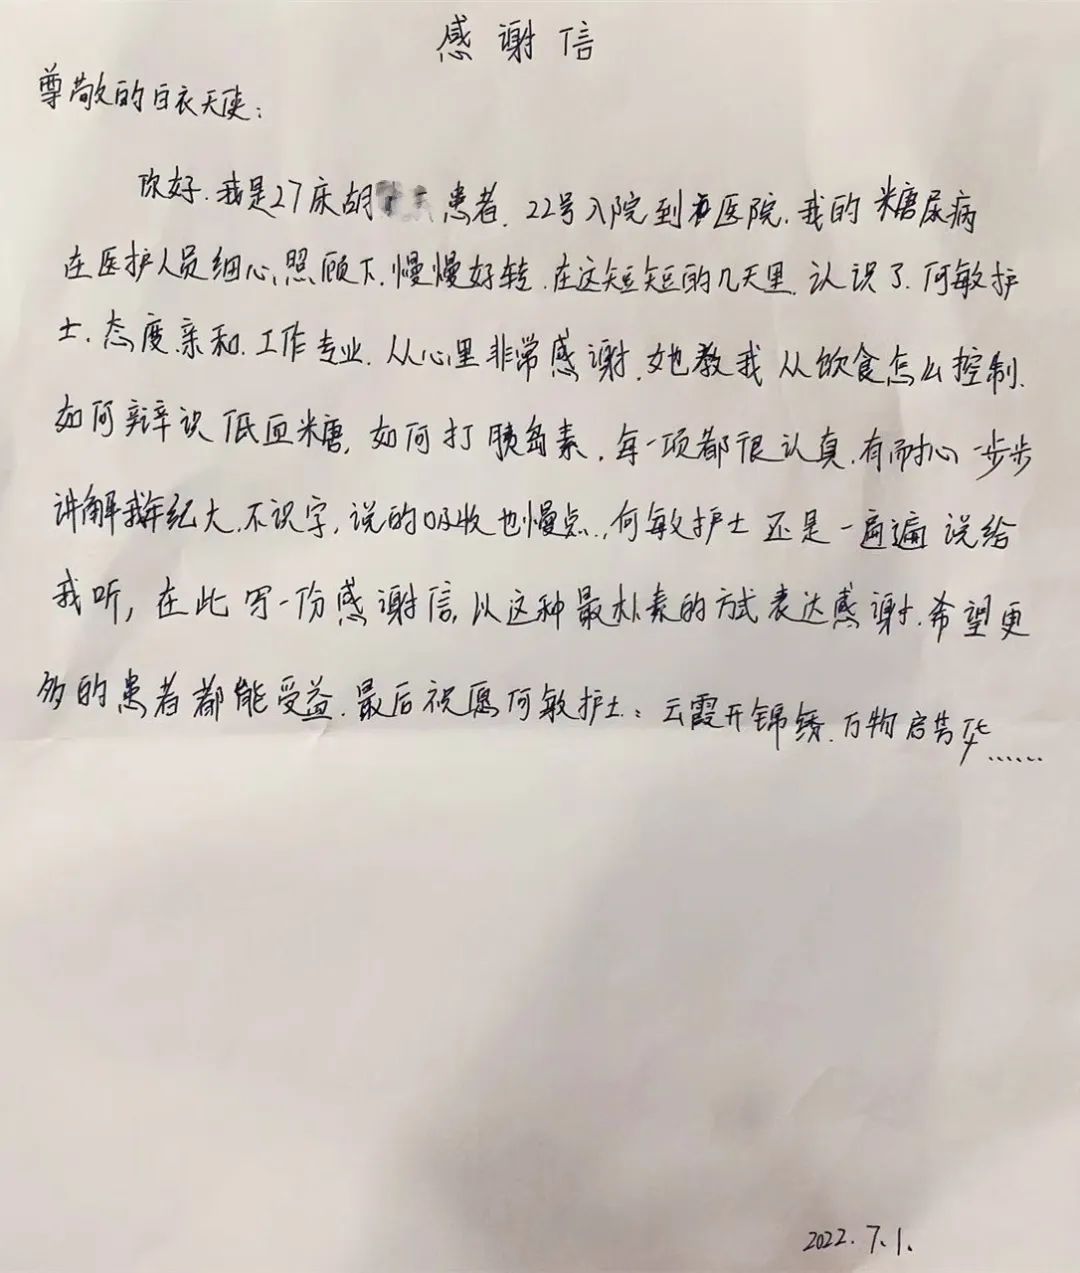 感谢信
尊敬的白衣天使：
你好.我是27床胡患者.22号入院到医院.我的糖尿病
在医护人员细心照顾下.慢慢好转.在这短短的几天里.认识了.何敏护
士.态度亲和.工作专业.从心里非常感谢.她教我从饮食怎么控制.
如何辩识低血糖,如何打胰岛素.每一项都很认真.有耐心一步步
讲解我年纪大.不识字,说的吸收也慢点.,何敏护士还是一遍遍说给
我听,在此写一份感谢信,以这种最朴素的方式表达感谢.希望更
多的患者都能受益.最后祝愿何敏护士：云霞开锦绣.万物启芳华……
2022.7.1.